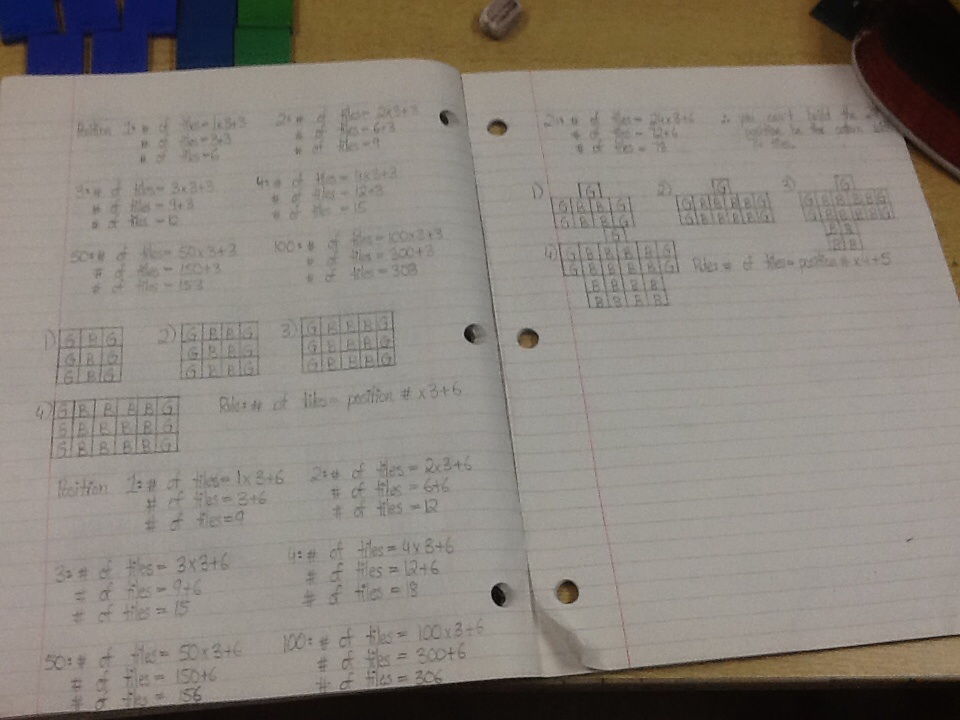 Position 1: # of tiles = 1x3+3
# of tiles = 3+3
# of tiles = 6
2: # of tiles = 2x3+3
# of tiles = 6+3
# of tiles = 9
3: # of tiles = 3x3+3
# of tiles = 9+3
# of tiles = 12
4: # of tiles = 4x3+3
# of tiles = 12+3
# of tiles = 15
50: # of tiles = 50x3+3
# of tiles = 150+3
# of tiles = 153
100: # of tiles = 100x3+3
# of tiles = 300+3
# of tiles = 303
1) G B G
G B G
G B G
2) G B B G
G B B G
G B B G
3) G B B B G
G B B B G
G B B B G
4) G B B B B G
G B B B B G
G B B B B G
Rule: # of tiles = position # x3+6
Position 1: # of tiles = 1x3+6
# of tiles = 3+6
# of tiles = 9
2: # of tiles = 2x3+6
# of tiles = 6+6
# of tiles = 12
3: # of tiles = 3x3+6
# of tiles = 9+6
# of tiles = 15
4: # of tiles = 4x3+6
# of tiles = 12+6
# of tiles = 18
50: # of tiles = 50x3+6
# of tiles = 150+6
# of tiles = 156
100: # of tiles = 100x3+6
# of tiles = 300+6
# of tiles = 306
24: # of tiles = 24x3+6
# of tiles = 72+6
# of tiles = 78
∴ you can't build the
position
tiles.
1) G
G B B G
G B B G
G
2) G
G B B B B G
G B B B B G
3) G
G B B B B G
G B B B B G
B B
B B
4) G B B B B G
G B B B B G
B B B B
B B B B
Rule: # of tiles = position # x4+5